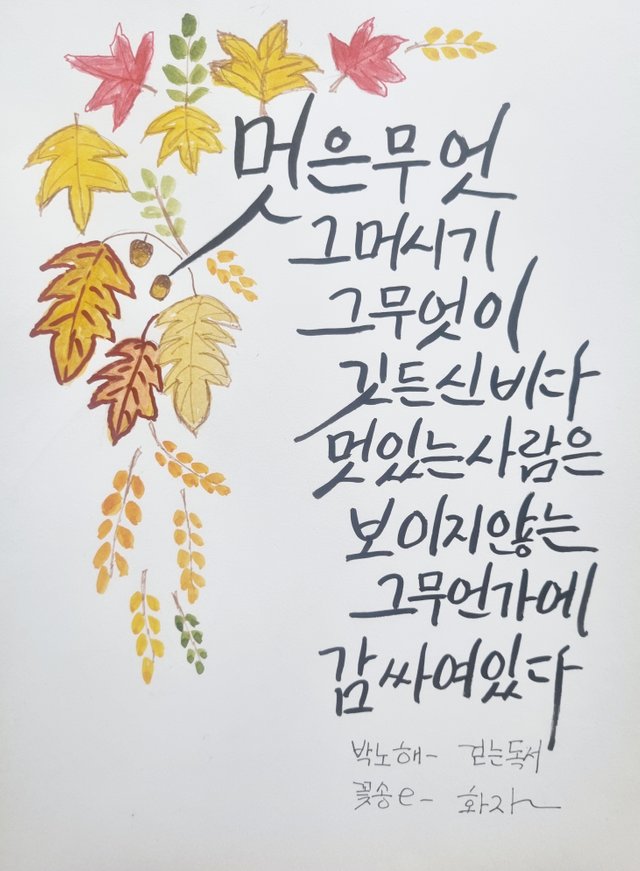 멋은 무엇
그 머시기
그 무엇이
깃든 신비다
멋있는 사람은
보이지 않는
그 무언가에
감싸여 있다
박노해- 걷는 독서
꽃송e- 화자~